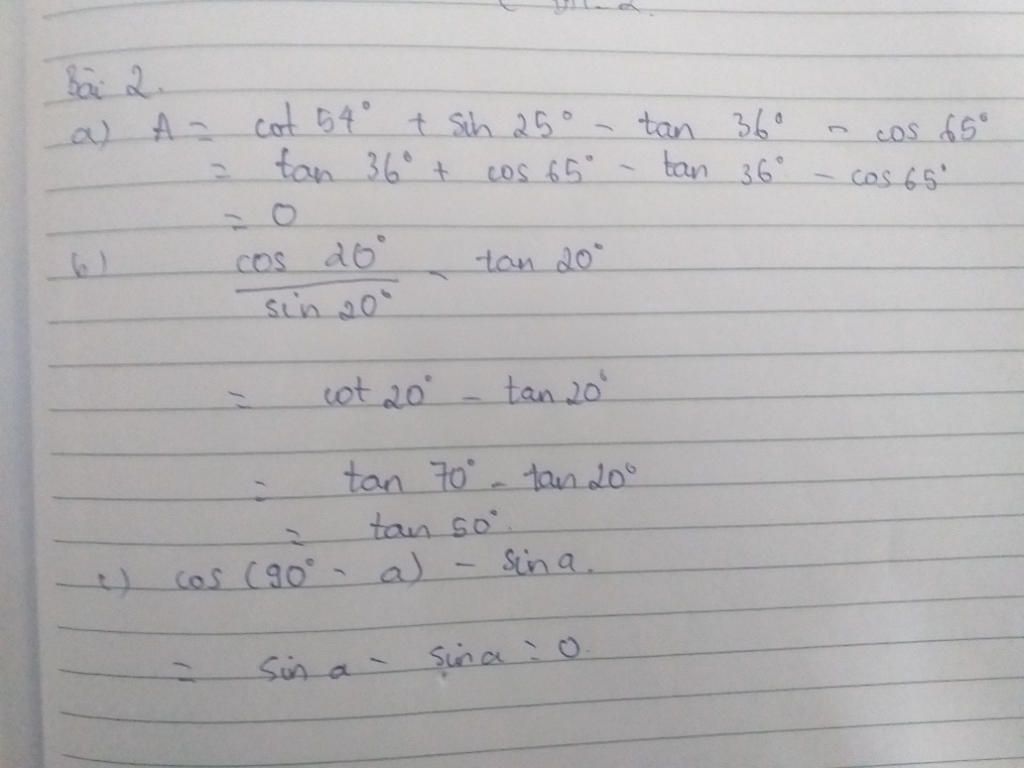 Bài 2.
a) A = cot 54° + sin 25° - tan 36° - cos 65°
= tan 36° + cos 65° - tan 36° - cos 65°
= 0
b) cos 20° / sin 20° - tan 20°
= cot 20° - tan 20°
= tan 70° - tan 20°
= tan 50°.
c) cos (90° - a) - sin a.
= sin a - sin a = 0.